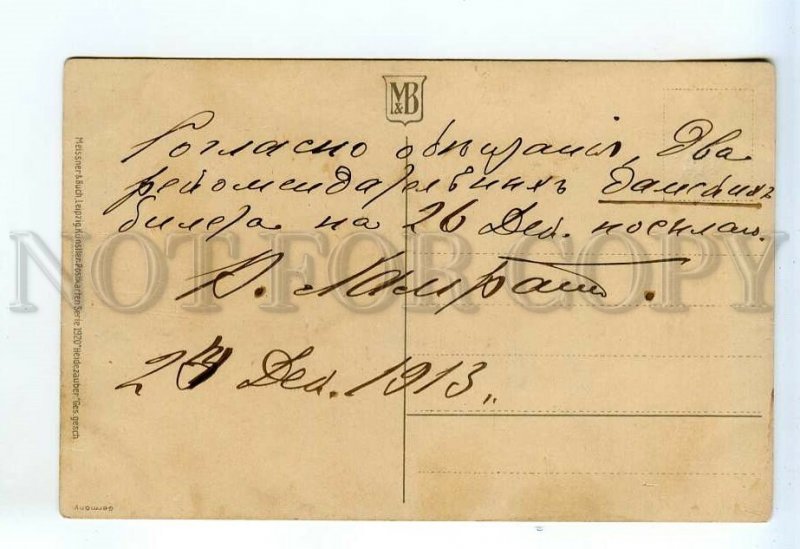 M&B
Согласно обѣщанія, Два
рекомендательныхъ дамскихъ
билета на 26 Дек. посылаю.
24 Дек. 1913
Meissner & Buch, Leipzig. Künstler-Postkarten Serie 1920 "Heidezauber" Ges. gesch.
Germany
NOT FOR COPY